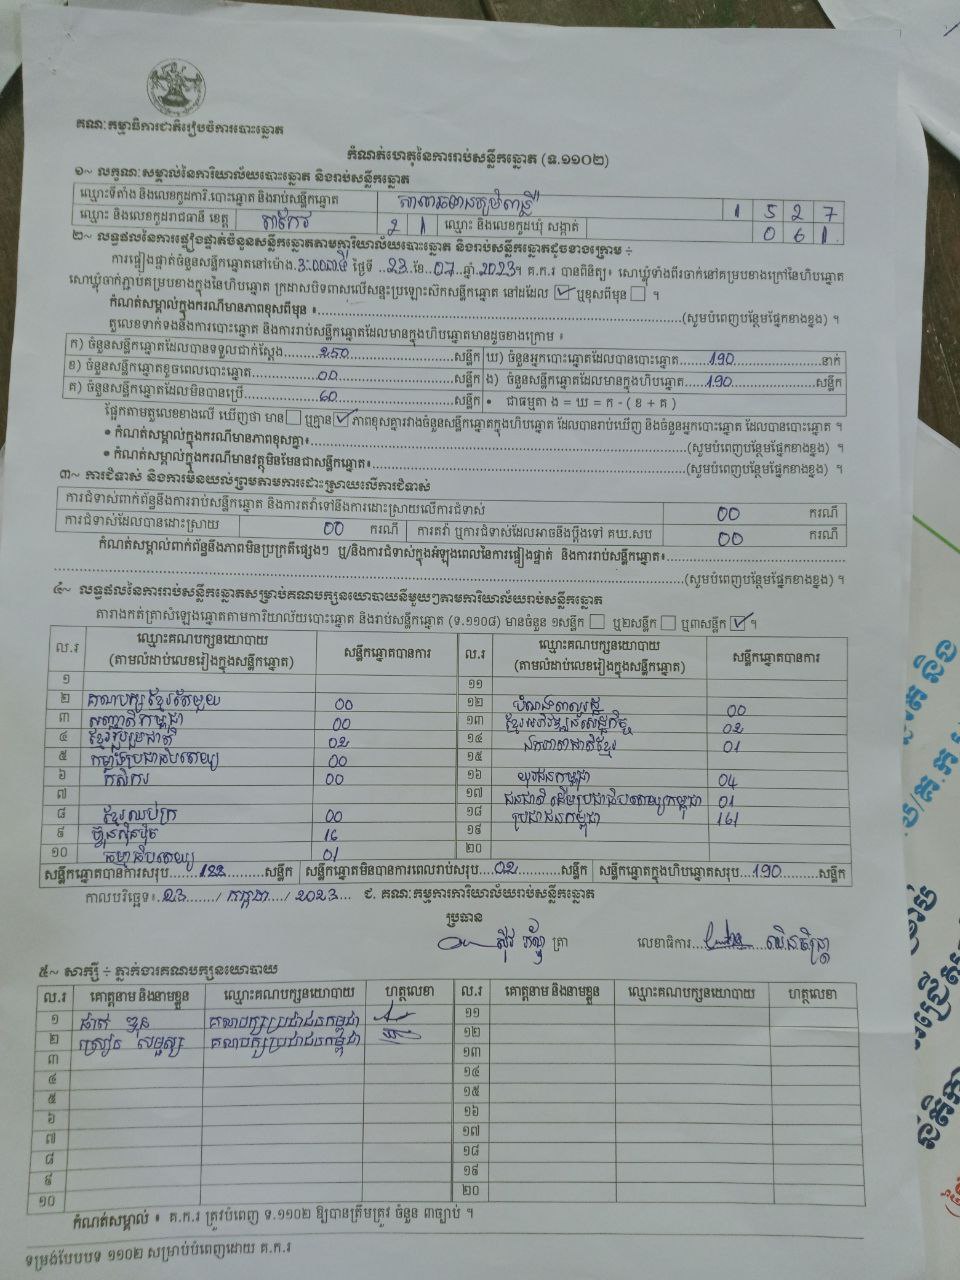 គណៈកម្មាធិការជាតិរៀបចំការបោះឆ្នោត
កំណត់ហេតុនៃការរាប់សន្លឹកឆ្នោត (ទ.១១០២)
១~ លក្ខណៈសម្គាល់នៃការិយាល័យបោះឆ្នោត និងរាប់សន្លឹកឆ្នោត
ឈ្មោះទីតាំង និងលេខកូដការិ.បោះឆ្នោត និងរាប់សន្លឹកឆ្នោត 1 5 2 7
ឈ្មោះ និងលេខកូដរាជធានី ខេត្ត តាកែវ 2 1 ឈ្មោះ និងលេខកូដឃុំ សង្កាត់ 0 6 1
២~ លទ្ធផលនៃការផ្ទៀងផ្ទាត់ចំនួនសន្លឹកឆ្នោតតាមការិយាល័យបោះឆ្នោត និងរាប់សន្លឹកឆ្នោតដូចខាងក្រោម ÷
ការផ្ទៀងផ្ទាត់ចំនួនសន្លឹកឆ្នោតនៅម៉ោង ថ្ងៃទី ..23..ខែ..07..ឆ្នាំ.2023។ គ.ក.រ បានពិនិត្យ៖ សោឃ្លុំទាំងពីរចាក់នៅគម្របខាងក្រៅនៃហិបឆ្នោត
សោឃ្លុំចាក់ភ្ជាប់គម្របខាងក្នុងនៃហិបឆ្នោត ក្រដាសបិទពាសលើសន្ទះប្រឡោះស៊កសន្លឹកឆ្នោត នៅដដែល ☑ ឬខុសពីមុន ☐ ។
កំណត់សម្គាល់ក្នុងករណីមានភាពខុសពីមុន ៖ (សូមបំពេញបន្ថែមផ្នែកខាងខ្នង) ។
តួលេខទាក់ទងនឹងការបោះឆ្នោត និងការរាប់សន្លឹកឆ្នោតដែលមានក្នុងហិបឆ្នោតមានដូចខាងក្រោម ៖
ក) ចំនួនសន្លឹកឆ្នោតដែលបានទទួលជាក់ស្តែង 250 សន្លឹក ឃ) ចំនួនអ្នកបោះឆ្នោតដែលបានបោះឆ្នោត 190 នាក់
ខ) ចំនួនសន្លឹកឆ្នោតខូចពេលបោះឆ្នោត 00 សន្លឹក ង) ចំនួនសន្លឹកឆ្នោតដែលមានក្នុងហិបឆ្នោត 190 សន្លឹក
គ) ចំនួនសន្លឹកឆ្នោតដែលមិនបានប្រើ 60 សន្លឹក • ជាធម្មតា ង = ឃ = ក - ( ខ + គ )
ផ្អែកតាមតួលេខខាងលើ ឃើញថា មាន ☐ ឬគ្មាន ☑ ភាពខុសគ្នារវាងចំនួនសន្លឹកឆ្នោតក្នុងហិបឆ្នោត ដែលបានរាប់ឃើញ និងចំនួនអ្នកបោះឆ្នោត ដែលបានបោះឆ្នោត ។
• កំណត់សម្គាល់ក្នុងករណីមានភាពខុសគ្នា៖ (សូមបំពេញបន្ថែមផ្នែកខាងខ្នង) ។
• កំណត់សម្គាល់ក្នុងករណីមានវត្ថុមិនមែនជាសន្លឹកឆ្នោត៖ (សូមបំពេញបន្ថែមផ្នែកខាងខ្នង) ។
៣~ ការជំទាស់ និងការមិនយល់ព្រមតាមការដោះស្រាយលើការជំទាស់
ការជំទាស់ពាក់ព័ន្ធនឹងការរាប់សន្លឹកឆ្នោត និងការតវ៉ាទៅនឹងការដោះស្រាយលើការជំទាស់ 00 ករណី
ការជំទាស់ដែលបានដោះស្រាយ 00 ករណី ការតវ៉ា ឬការជំទាស់ដែលអាចនឹងប្តឹងទៅ គឃ.សប 00 ករណី
កំណត់សម្គាល់ពាក់ព័ន្ធនឹងភាពមិនប្រក្រតីផ្សេងៗ ឬ/និងការជំទាស់ក្នុងអំឡុងពេលនៃការផ្ទៀងផ្ទាត់ និងការរាប់សន្លឹកឆ្នោត៖
(សូមបំពេញបន្ថែមផ្នែកខាងខ្នង) ។
៤~ លទ្ធផលនៃការរាប់សន្លឹកឆ្នោតសម្រាប់គណបក្សនយោបាយនីមួយៗតាមការិយាល័យរាប់សន្លឹកឆ្នោត
តារាងកត់ត្រាសំឡេងឆ្នោតតាមការិយាល័យបោះឆ្នោត និងរាប់សន្លឹកឆ្នោត (ទ.១១០៨) មានចំនួន ១សន្លឹក ☐ ឬ២សន្លឹក ☐ ឬ៣សន្លឹក ☑ ។
ល.រ ឈ្មោះគណបក្សនយោបាយ (តាមលំដាប់លេខរៀងក្នុងសន្លឹកឆ្នោត) សន្លឹកឆ្នោតបានការ ល.រ ឈ្មោះគណបក្សនយោបាយ (តាមលំដាប់លេខរៀងក្នុងសន្លឹកឆ្នោត) សន្លឹកឆ្នោតបានការ
១ ១១
២ គណបក្សខ្មែរតែមួយ 00 ១២ 00
៣ សញ្ជាតិកម្ពុជា 00 ១៣ ខ្មែរអភិវឌ្ឍន៍សេដ្ឋកិច្ច 02
៤ ខ្មែររួបរួមជាតិ 02 ១៤ ឯកភាពជាតិខ្មែរ 01
៥ កម្លាំងប្រជាធិបតេយ្យ 00 ១៥
៦ កសិករ 00 ១៦ យុវជនកម្ពុជា 04
៧ ១៧ ជនជាតិដើមប្រជាធិបតេយ្យកម្ពុជា 01
៨ ខ្មែរឈប់ក្រ 00 ១៨ ប្រជាជនកម្ពុជា 161
៩ ហ៊្វុនស៊ិនប៉ិច 16 ១៩
១០ 01 ២០
សន្លឹកឆ្នោតបានការសរុប 188 សន្លឹក សន្លឹកឆ្នោតមិនបានការពេលរាប់សរុប 02 សន្លឹក សន្លឹកឆ្នោតក្នុងហិបឆ្នោតសរុប 190 សន្លឹក
កាលបរិច្ឆេទ៖ 23 / កក្កដា / 2023 ជ. គណៈកម្មការការិយាល័យរាប់សន្លឹកឆ្នោត
ប្រធាន
ត្រា លេខាធិការ
៥~ សាក្សី ÷ ភ្នាក់ងារគណបក្សនយោបាយ
ល.រ គោត្តនាម និងនាមខ្លួន ឈ្មោះគណបក្សនយោបាយ ហត្ថលេខា ល.រ គោត្តនាម និងនាមខ្លួន ឈ្មោះគណបក្សនយោបាយ ហត្ថលេខា
១ គណបក្សប្រជាជនកម្ពុជា ១១
២ គណបក្សប្រជាជនកម្ពុជា ១២
៣ ១៣
៤ ១៤
៥ ១៥
៦ ១៦
៧ ១៧
៨ ១៨
៩ ១៩
១០ ២០
កំណត់សម្គាល់ ៖ គ.ក.រ ត្រូវបំពេញ ទ.១១០២ ឱ្យបានត្រឹមត្រូវ ចំនួន ៣ច្បាប់ ។
ទម្រង់បែបបទ ១១០២ សម្រាប់បំពេញដោយ គ.ក.រ